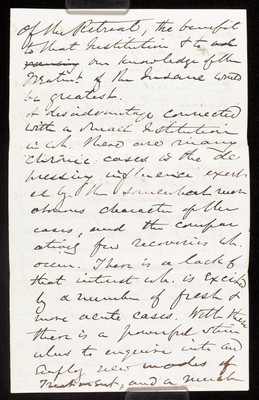 of the Retreat, the benefit
to that Institution & to ad
vancing our knowledge of the
Treatmt of the Insane would
be greatest.
A disadvantage connected
with a small Institution
in wh. there are many
chronic cases is the de
pressing influence exert
ed by the somewhat mon
otonous character of the
cases, and the compar
atively few recoveries wh.
occur. There is a lack of
that interest wh. is excited
by a number of fresh &
more acute cases. With these
there is a powerful stim
ulus to enquire into and
employ new modes of
Treatment, and a much